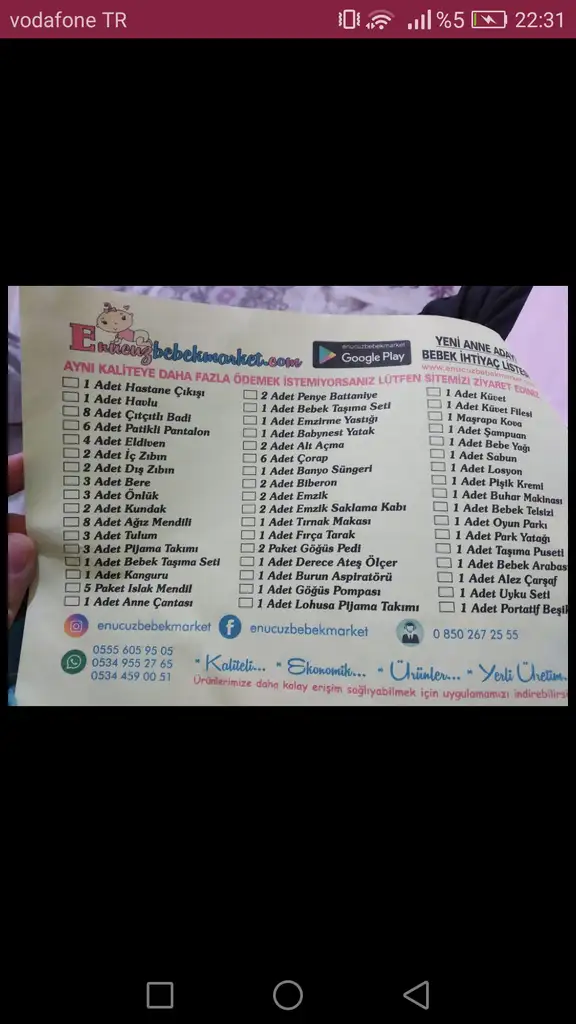 vodafone TR
%5
22:31
Enucuzbebekmarket.com
enucuzbebekmarket
Google Play
YENİ ANNE ADAYI
BEBEK İHTİYAÇ LİSTESİ
AYNI KALİTEYE DAHA FAZLA ÖDEMEK İSTEMİYORSANIZ LÜTFEN SİTEMİZİ ZİYARET EDİNİZ.
1 Adet Hastane Çıkışı
1 Adet Havlu
8 Adet Çıtçıtlı Badi
6 Adet Patikli Pantalon
4 Adet Eldiven
2 Adet İç Zıbın
2 Adet Dış Zıbın
3 Adet Bere
3 Adet Önlük
2 Adet Kundak
8 Adet Ağız Mendili
3 Adet Tulum
3 Adet Pijama Takımı
1 Adet Bebek Taşıma Seti
1 Adet Kanguru
5 Paket Islak Mendil
1 Adet Anne Çantası
2 Adet Penye Battaniye
1 Adet Bebek Taşıma Seti
1 Adet Emzirme Yastığı
1 Adet Babynest Yatak
2 Adet Alt Açma
6 Adet Çorap
1 Adet Banyo Süngeri
2 Adet Biberon
2 Adet Emzik
2 Adet Emzik Saklama Kabı
1 Adet Tırnak Makası
1 Adet Fırça Tarak
2 Paket Göğüs Pedi
1 Adet Derece Ateş Ölçer
1 Adet Burun Aspiratörü
1 Adet Göğüs Pompası
1 Adet Lohusa Pijama Takımı
1 Adet Küvet
1 Adet Küvet Filesi
1 Maşrapa Kova
1 Adet Şampuan
1 Adet Bebe Yağı
1 Adet Sabun
1 Adet Losyon
1 Adet Pişik Kremi
1 Adet Buhar Makinası
1 Adet Bebek Telsizi
1 Adet Oyun Parkı
1 Adet Park Yatağı
1 Adet Taşıma Puseti
1 Adet Bebek Arabas
1 Adet Alez Çarşaf
1 Adet Uyku Seti
1 Adet Portatif Beşik
enucuzbebekmarket
enucuzbebekmarket
0 850 267 25 55
0555 605 95 05
0534 955 27 65
0534 459 00 51
" Kaliteli... " Ekonomik... " Ürünler... " Yerli Üretim.
Ürünlerimize daha kolay erişim sağlıyabilmek için uygulamamızı indirebilirsi